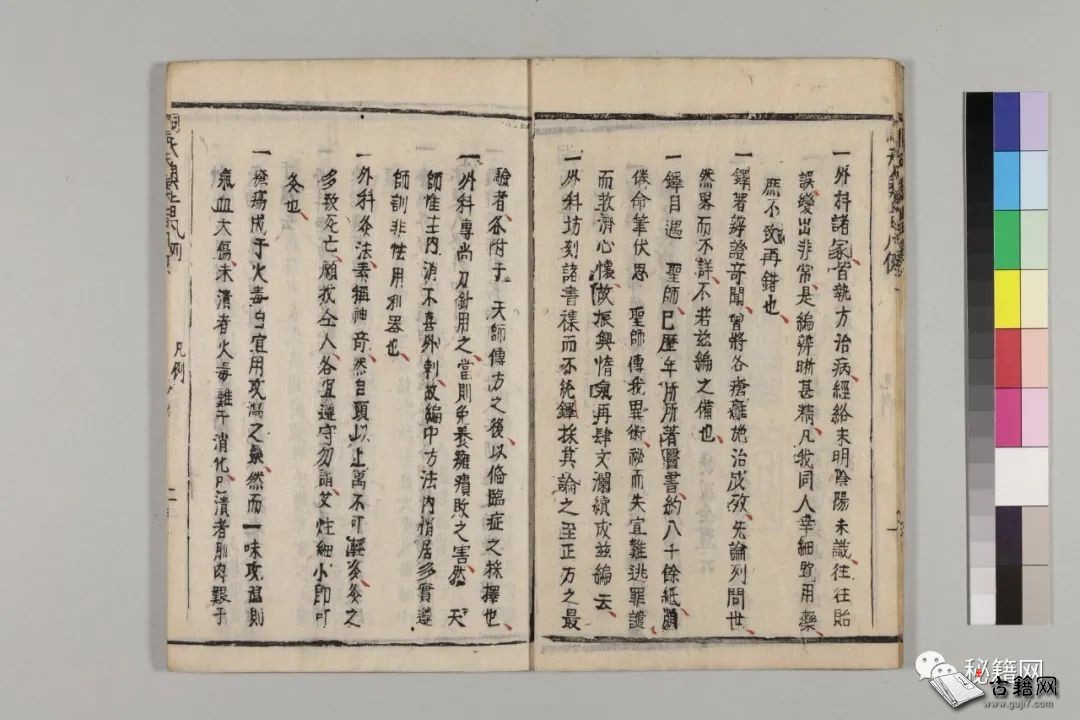 一外科諸家皆執方治病經絡未明陰陽未識往往貽
誤變出非常是編辨晰甚精凡我同人幸細閱用藥
庶不致再錯也
一鐸著辨證奇聞曾將各瘡瘍施治成效先論列問世
然畧而不詳不若茲編之備也
一鐸自遇 聖師已歷年所所著醫書約八十餘紙願
僕命筆伏思 聖師傳我異術祕而失宜難逃罪譴
而救濟心懷故振興惰氣再肆文瀾續成茲編云
一外科坊刻諸書襍而不純鐸採其論之至正方之最
驗者各附于 天師傳方之後以備臨症之採擇也
一外科專尚刀針用之當則免養癰潰敗之害然 天
師惟主內消不喜外刺故編中方法內消居多實遵
師訓非怯用刑器也
一外科灸法素稱神奇然自頭以上萬不可輕灸灸之
多致死亡願我仝人各宜遵守勿謂艾炷細小即可
灸也
一瘡瘍成于火毒自宜用攻瀉之藥然而一味攻瀉則
氣血大傷未潰者火毒難于消化已潰者肌肉艱于
凡例
秘籍网
古籍网
www.guji7.com